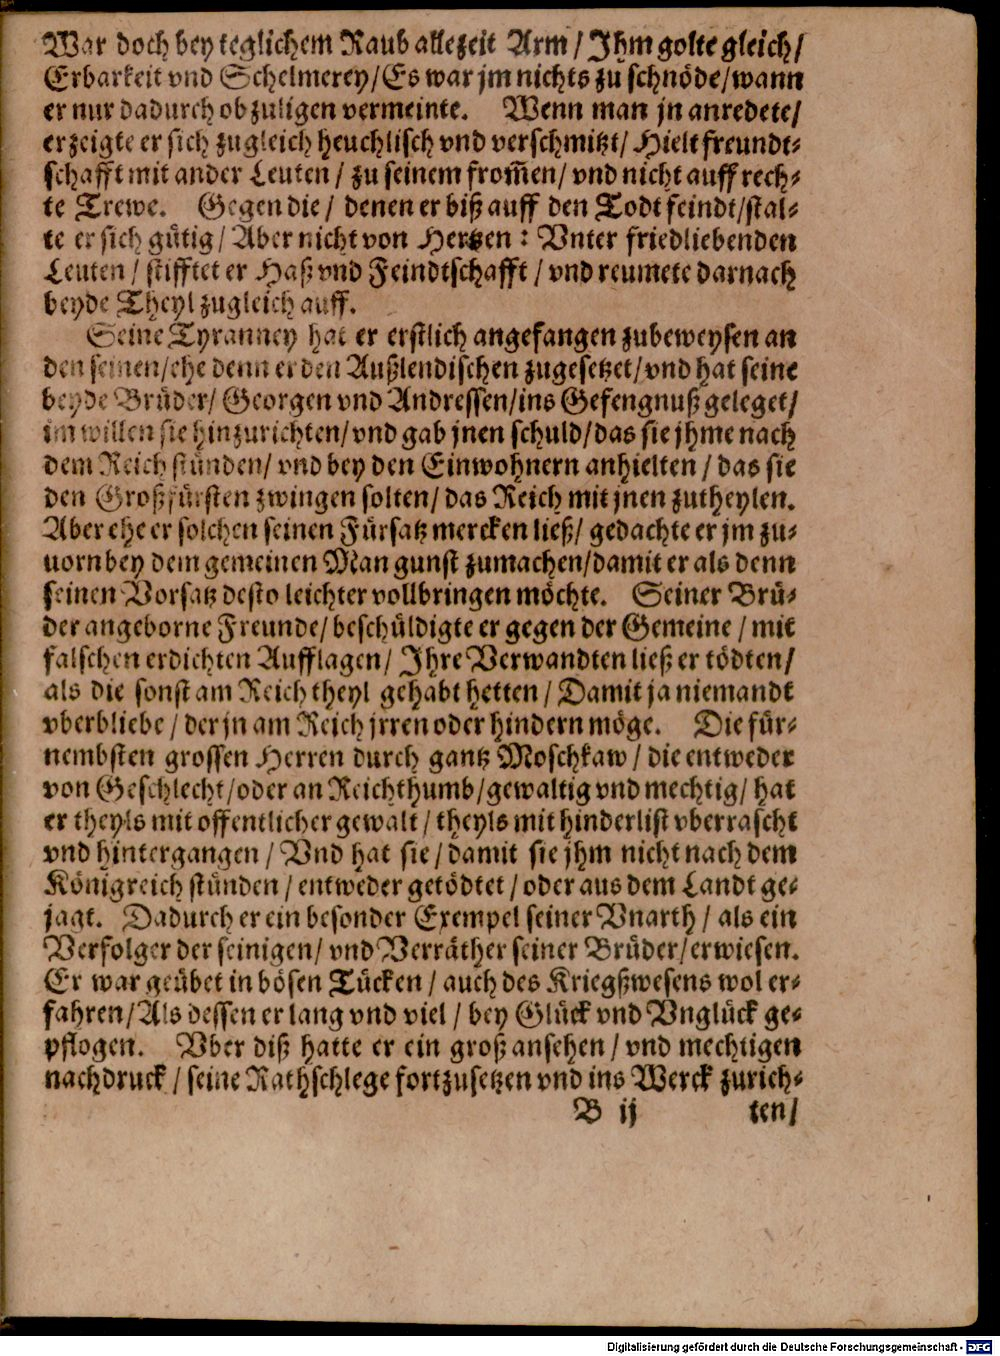 War doch bey teglichem Raub allezeit Arm / Jhm golte gleich /
Erbarkeit vnd Schelmerey / Es war jm nichts zu schnöde / wann
er nur dadurch ob zuligen vermeinte. Wenn man jn anredete /
erzeigte er sich zugleich heuchlisch vnd verschmitzt / Hielt freundt-
schafft mit ander Leuten / zu seinem from̃en / vnd nicht auff rech-
te Trewe. Gegen die / denen er biß auff den Todt feindt / stal-
te er sich gütig / Aber nicht von Hertzen : Vnter friedliebenden
Leuten / stifftet er Haß vnd Feindtschafft / vnd reumete darnach
beyde Theyl zugleich auff.
Seine Tyranney hat er erstlich angefangen zubeweysen an
den seinen / ehe denn er den Außlendischen zugesetzet / vnd hat seine
beyde Brüder / Georgen vnd Andressen / ins Gefengnuß geleget /
im willen sie hinzurichten / vnd gab jnen schuld / das sie jhme nach
dem Reich stünden / vnd bey den Einwohnern anhielten / das sie
den Großfürsten zwingen solten / das Reich mit jnen zutheylen.
Aber ehe er solchen seinen Fürsatz mercken ließ / gedachte er jm zu-
uorn bey dem gemeinen Man gunst zumachen / damit er als denn
seinen Vorsatz desto leichter vollbringen möchte. Seiner Brü-
der angeborne Freunde / beschüldigte er gegen der Gemeine / mit
falschen erdichten Aufflagen / Jhre Verwandten ließ er tödten /
als die sonst am Reich theyl gehabt hetten / Damit ja niemandt
vberbliebe / der jn am Reich jrren oder hindern möge. Die für-
nembsten grossen Herren durch gantz Moschkaw / die entweder
von Geschlecht / oder an Reichthumb / gewaltig vnd mechtig / hat
er theyls mit offentlicher gewalt / theyls mit hinderlist vberrascht
vnd hintergangen / Vnd hat sie / damit sie jhm nicht nach dem
Königreich stünden / entweder getödtet / oder aus dem Landt ge-
jagt. Dadurch er ein besonder Exempel seiner Vnarth / als ein
Verfolger der seinigen / vnd Verräther seiner Brüder / erwiesen.
Er war geübet in bösen Tücken / auch des Kriegßwesens wol er-
fahren / Als dessen er lang vnd viel / bey Glück vnd Vnglück ge-
pflogen. Vber diß hatte er ein groß ansehen / vnd mechtigen
nachdruck / seine Rathschlege fortzusetzen vnd ins Werck zurich-
B ij ten /
Digitalisierung gefördert durch die Deutsche Forschungsgemeinschaft - DFG